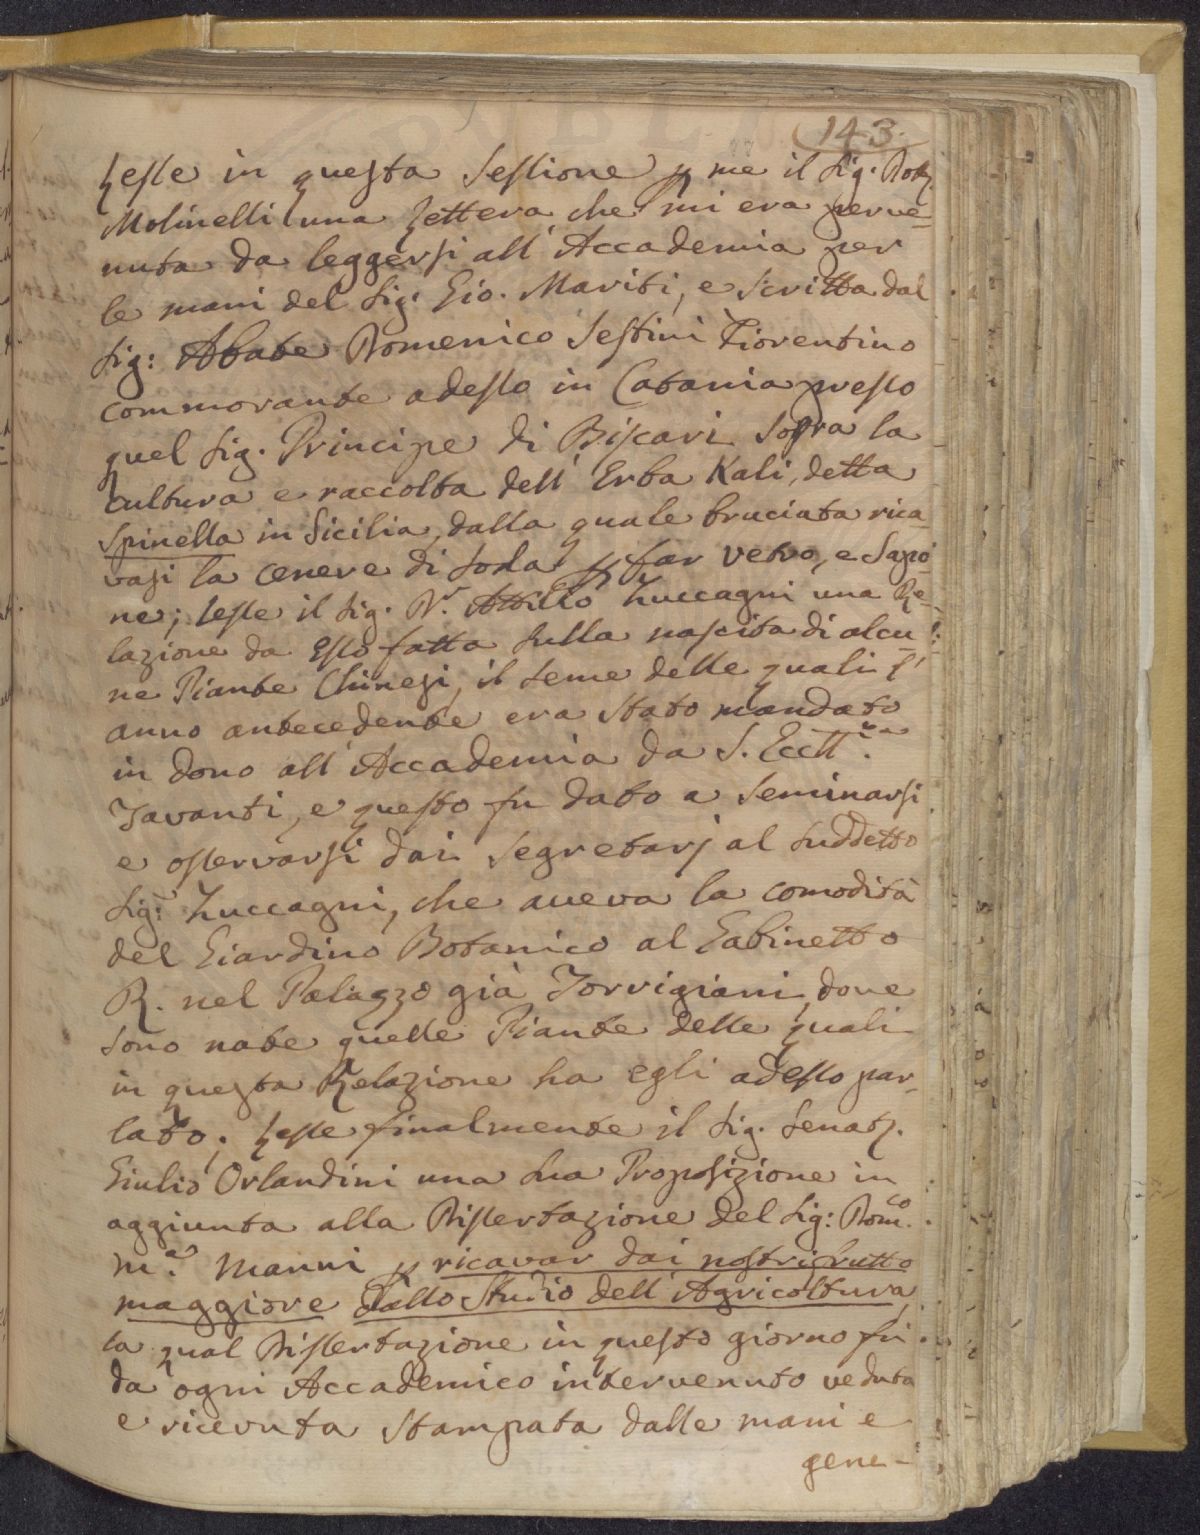 143.
Lesse in questa Sessione p me il Sig. Dotr.
Molinelli una Lettera che mi era perve-
nuta da leggersi all' Accademia per
le mani del Sig: Gio. Mariti, e scritta dal
Sig: Abate Domenico Sestini Fiorentino
commorante adesso in Catania presso
quel Sig. Principe di Biscari sopra la
cultura e raccolta dell' Erba Kali, detta
Spinella in Sicilia, dalla quale bruciata rica-
vasi la cenere di Soda p far vetro, e Sapo-
ne; lesse il Sig. Dr. Attilio Zuccagni una Re-
lazione da esso fatta sulla nascita di alcu-
ne Piante Chinesi, il seme delle quali l'
anno antecedente era stato mandato
in dono all' Accademia da S. Eccll.za
Tavanti, e questo fu dato a seminarsi
e osservarsi dai Segretarj al suddetto
Sig: Zuccagni, che aveva la comodità
del Giardino Botanico al Gabinetto
R. nel Palazzo già Torrigiani, dove
sono nate quelle Piante delle quali
in questa Relazione ha egli adesso par-
lato; Lesse finalmente il Sig. Senatr.
Giulio Orlandini una sua Proposizione in
aggiunta alla Dissertazione del Sig: Dom.co
M.a Manni p ricavar dai nostri frutto
maggiore dallo Studio dell' Agricoltura,
la qual Dissertazione in questo giorno fu
da ogni Accademico intervenuto veduta
e ricevuta stampata dalle mani e
gene-